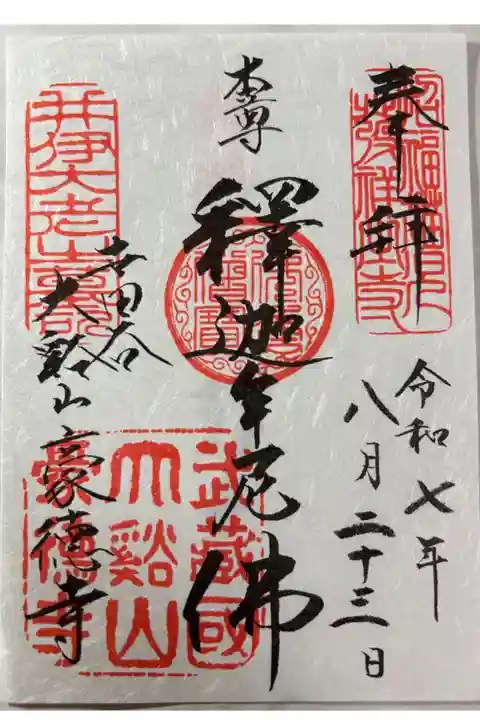 奉拝
令和七年
八月二十三日
本尊
釋迦牟尼佛
世田谷
大谿山豪德寺
井伊大老
武藏國
大谿山
豪德寺